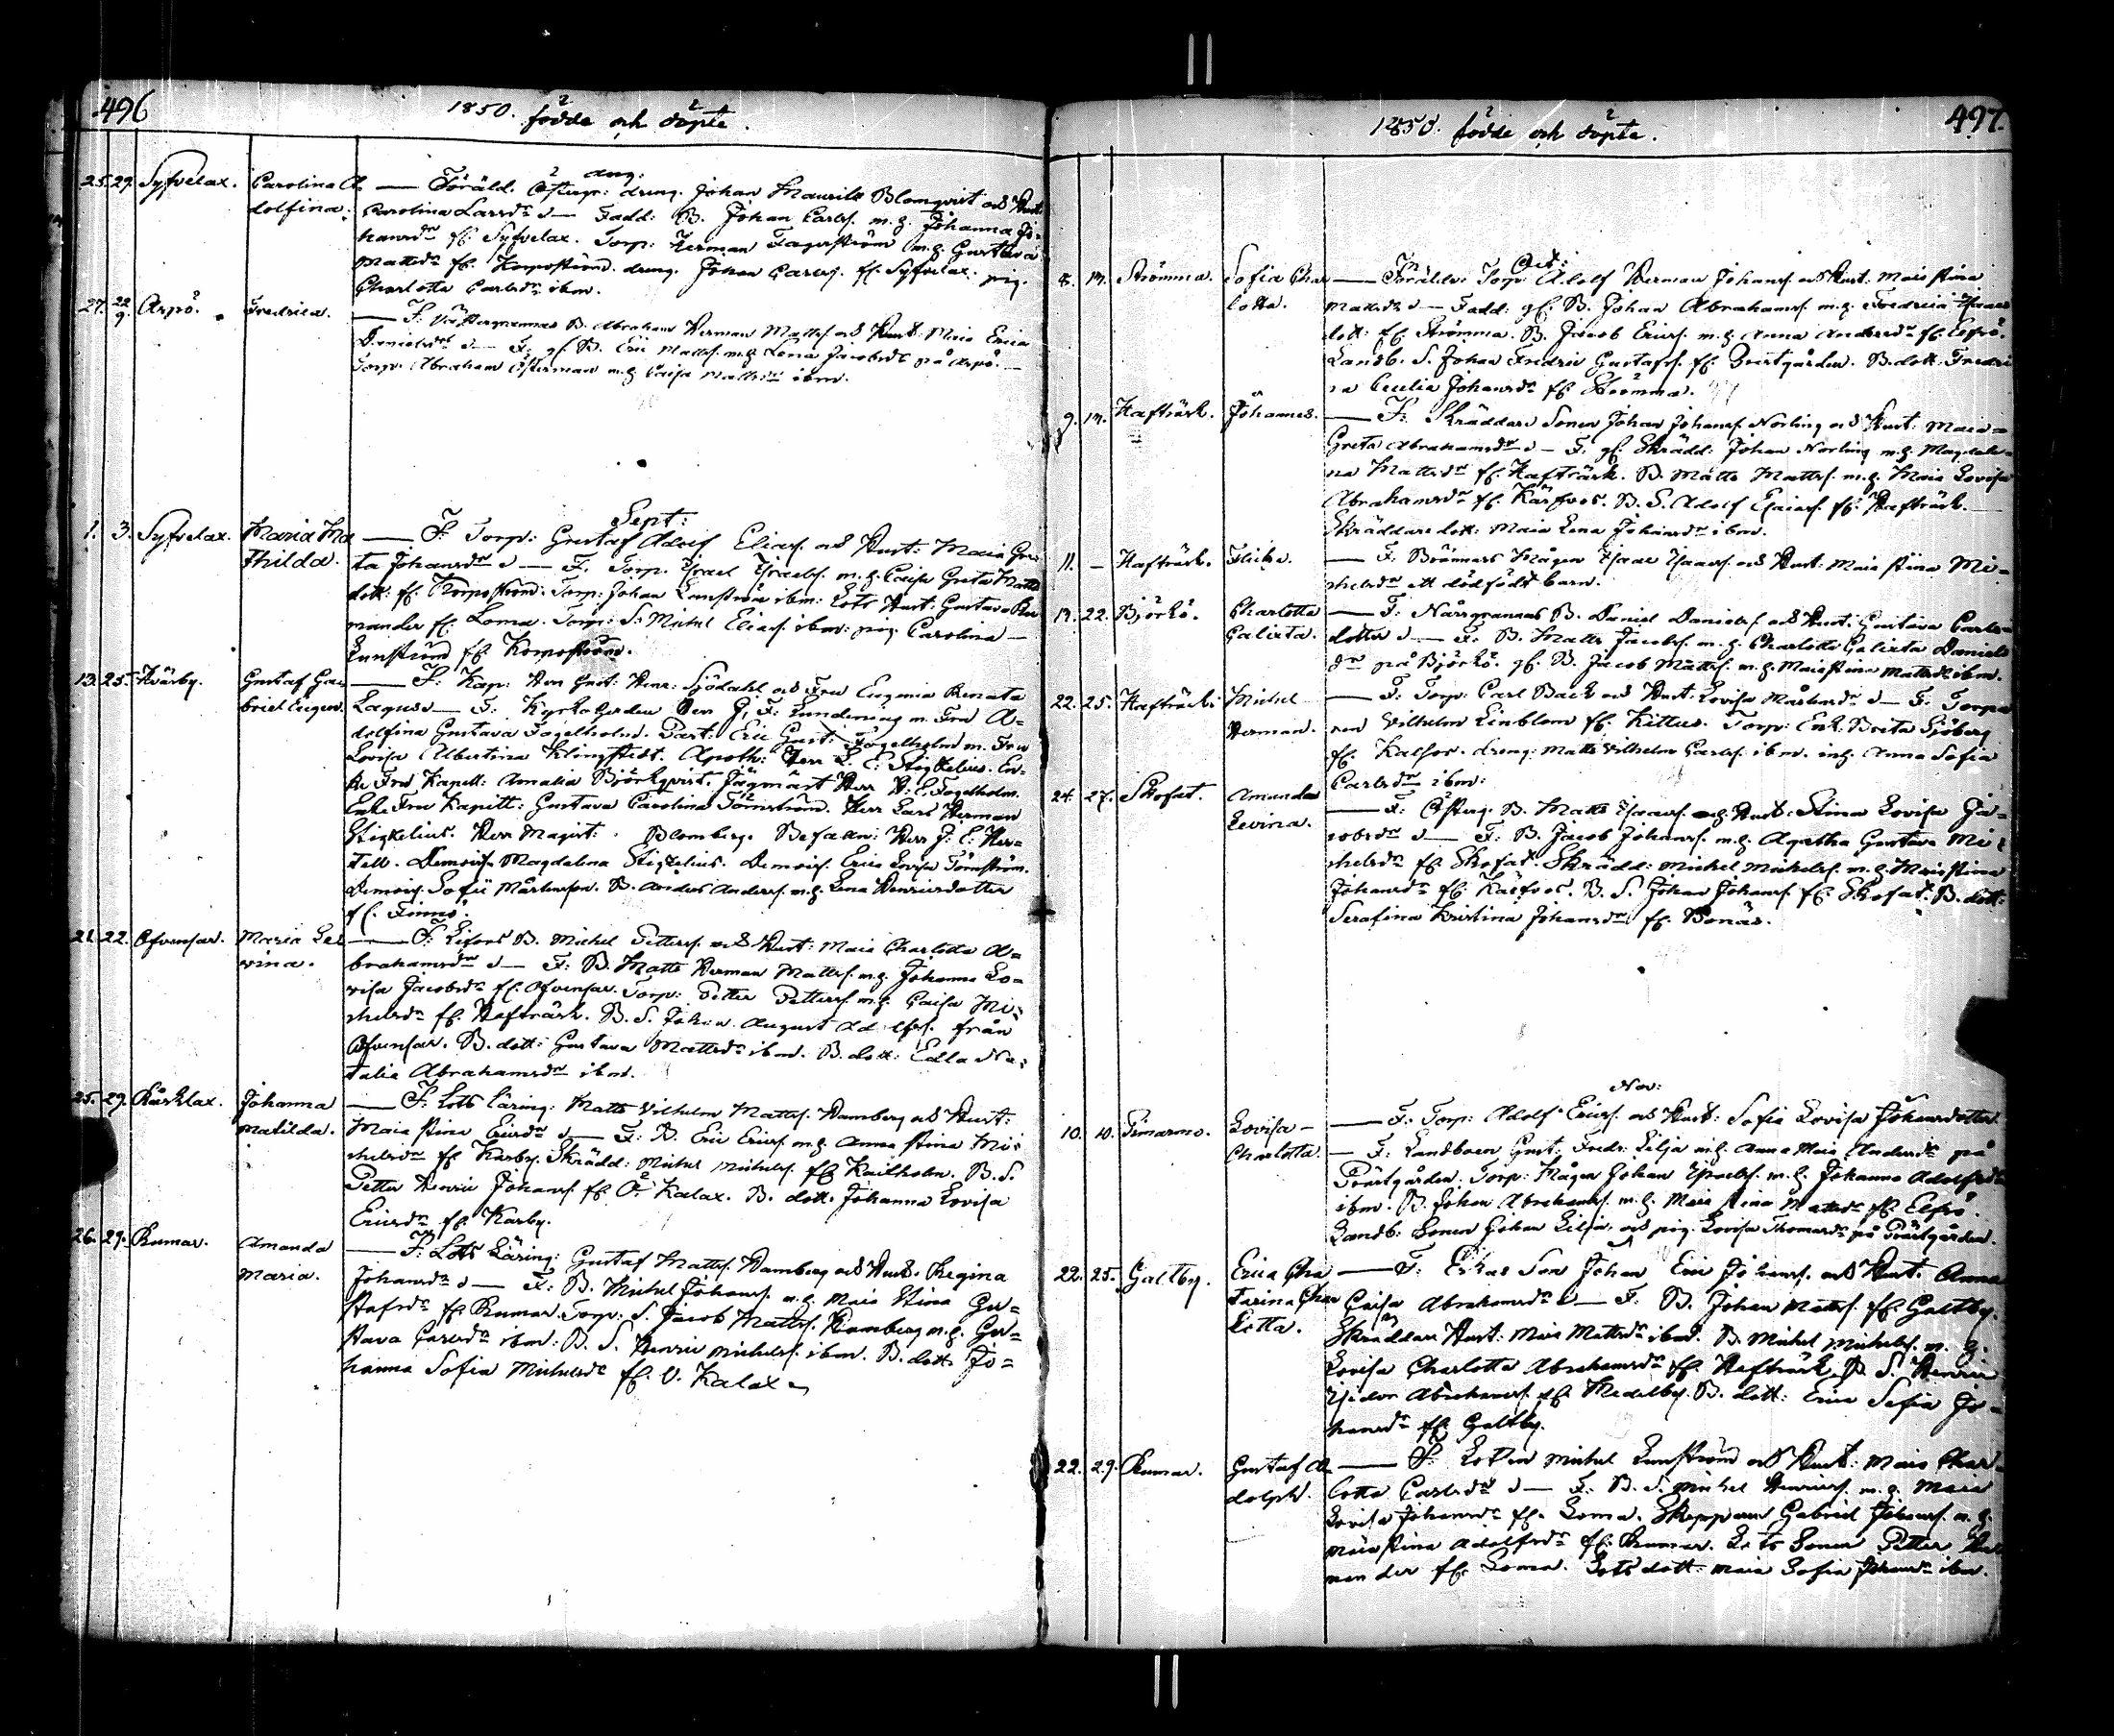 496
1850. födde och döpte.
Aug:
25. 29. Syfvelax. Carolina A — Föräld. Östergr: dreng. Johan Maurits Blomqvist och Hust:
dolfina. Carolina Larsdr — Fadd: B. Johan Carls. m.h. Johanna Jo-
hansdr fr. Syfvelax. Torp: Herman Fagerström m.h. Gustava
Mattsdr fr. Korpoström. dreng. Johan Carls. fr. Syfvelax. pig.
Charlotta Carlsdr ibm.
27. 22/9 Aspö. Fredrica. — F. Vestergrannas B. Abraham Herman Matts. och Hust: Maia Erica
Danielsdr — F. gl. B. Eric Matts. m.h. Lena Jacobsdr på Aspö. —
Torp. Abraham Österman m.h. Caisa Mattsdr ibm.
Sept:
1. 3. Syfvelax. Maria Ma — F. Torp: Gustaf Adolf Elias. och Hust: Maia Gre
thilda. ta Johansdr — F. Torp. Israel Israels. m.h. Caisa Greta Matts
dott: fr. Korpoström. Torp: Johan Lunström ibm: Lots Hust: Gustava
mander fr. Loma. Torp: S. Michel Elias. ibm: pig. Carolina —
Lunström fr. Korpoström.
13. 25. Kvärby. Gustaf Ga — F: Kap: Herr Gust: Henr: Sjödahl och Fru Eugenia Renata
briel Eugen. Lagus — F: Kyrkoherden Herr J. F: m. Fru A=
dolfina Gustava Fogelholm. Past: Eric Gust: Fogelholm m. Fru
Lovisa Albertina Klingstedt. Apoth: Herr L. E: Stigzelius. En-
ke Fru Kapell: Amalia Björkqvist. Jägmäst Herr H. E. Fogelholm.
Enke Fru Kapell: Gustava Carolina Törnström. Herr Lars Herman
Stigzelius. Herr Magist: Blomberg. Befalln: Herr J: E: Her=
tell. Demois. Magdalena Stigzelius. Demois. Erica Lovisa Törnström.
Demois. Sofie Mårtenson. B. Anders Anders. m.h. Lena Henricsdotter
fr. Finnö.
21. 22. Ofvensar. Maria Le — F: B. Michel Petters. och Hust: Maia Charlotta A=
vina. brahamsdr — F: B. Matts Herman Matts. m.h. Johanna Lo=
visa Jacobsdr fr. Ofvensar. Torp: Petter Petters. m.h. Caisa Mi=
chelsdr fr. Hafträsk. B. S. Johan August Adolfs. från
Ofvensar. B. dott: Gustava Mattsdr ibm. B. dott: Edla Na=
talia Abrahamsdr ibm.
25. 29. Råsklax. Johanna — F: Lots Läring: Matts Vilhelm Matts. Hamberg och Hust:
Matilda. Maia Stina Ericsdr — F: B. Eric Erics. m.h. Anna Stina Mi-
chelsdr fr. Karby. Skrädd: Michel Michels. fr. Kailholm. B. S.
Petter Henric Johans. fr. Ö. Kalax. B. dott. Johanna Lovisa
Ericsdr fr. Karby.
26. 29. Rumar. Amanda — F: Lots Läring: Gustaf Matts. Hamberg och Hust. Regina
Maria. Johansdr — F: B. Michel Johans. m.h. Maia Stina Gu=
stafsdr fr. Rumar. Torp: S. Jacob Matts. Hamberg m.h. Gu=
stava Carlsdr ibm: B. S. Henric Michels. ibm. B. dott. Jo=
hanna Sofia Michelsdr fr. V. Kalax
497.
1850. födde och döpte.
Oct:
8. 13. Strömma. Sofia Char — Föräldr: Torp Adolf Herman Johans. och Hust: Maia Stina
lotta. Mattsdr — Fadd: gl. B. Johan Abrahams. m.h. Fredrica Isaacs
dott: fr. Strömma. B. Jacob Erics. m.h. Anna Andersdr fr. Elfsö.
Landb. S. Johan Fredric Gustafs. fr. Prestgården. B. dott: Fredri
ca Cecilia Johansdr fr. Strömma.
9. 13. Hafträsk. Johannes. — F: Skräddare Sonen Johan Johans. Norling och Hust: Maia=
Greta Abrahamsdr — F. gl. Skrädd: Johan Norling m.h. Magdale=
na Mattsdr fr. Hafträsk. B. Matts Matts. m.h. Maia Lovisa
Abrahamsdr fr. Kärfvos. B. S. Adolf Esaias. fr. Hafträsk. —
Skräddare dott: Maia Lena Johansdr ibm.
11. — Hafträsk. Flicka. — F: Brännars Mågen Isaac Isaacs. och Hust: Maia Stina Mi=
chelsdr ett dödfödt barn.
13. 22. Björkö. Charlotta — F: Norrgrannas B. Daniel Daniels. och Hust. Gustava Carls=
Calixta. dotter — F. B. Matts Jacobs. m.h. Charlotta Calixta Daniels
dr på Björkö. gl. B. Jacob Matts. m.h. Maia Stina Mattsdr ibm.
22. 25. Hafträsk. Michel — F: Torp: Carl Back och Hust: Lovisa — F. Torpa
Herman. ren Vilhelm Linblom fr. Kittus. Torp: Enk. Brita Sjöberg
fr. Kalfsor. dreng: Matts Vilhelm Carls. ibm. inh. Anna Sofia
Carlsdr ibm:
24. 27. Skofat. Amanda — F: Österg. B. Matts Isaacs. och Hust: Stina Lovisa Ja=
Levina. cobsdr — F: B. Jacob Johans. m.h. Agatha Gustava Mi=
chelsdr fr. Skofat. Skrädd: Michel Michels. m.h. Maia Stina
Johansdr fr. Kärfvos. B. S. Johan Johans. fr. Skofat. B. dott:
Serafina Kristina Johansdr fr. Bonäs.
Nov:
10. 10. Finarmo. Lovisa — — F. Torp: Adolf Erics. och Hust: Sofia Lovisa Johansdotter
Charlotta. — F: Landboen Gust: Fredr: Lilja m.h. Anna Maia Andersdr på
Prästgården. Torp: Mågen Johan Israels. m.h. Johanna Adolfsdr
ibm. B. Johan Abrahams. m.h. Maia Stina Mattsdr fr. Elfsö.
Landb: Sonen Johan Lilja. och pig. Lovisa Thomasdr på Prästgården.
22. 25. Galtby. Erica Cha — F: Son Johan Eric Johans. och Hust. Anna
tarina Char Caisa Abrahamsdr — F. B. Johan Matts. fr. Galtby.
lotta. Skräddare Hust: Maia Mattsdr ibm. B. Michel Michels. m. h.
Lovisa Charlotta Abrahamsdr fr. Hafträsk. B. S. Henric
Isidor Abrahams. fr. Medelby. B. dott: Erica Sofia Jo=
hansdr fr. Galtby.
22. 29. Rumar. Gustaf A — F. Lotsen Michel Lunström och Hust: Maia Char=
dolph. lotta Carlsdr — F. B. S. Michel Henrics. m.h. Maia
Lovisa Johansdr fr. Loma. Skepparen Gabriel Johans. m.h.
Maia Stina Adolfsdr fr. Rumar. Lots Sonen Petter
mander fr. Loma. Lots dott: Maia Sofia Johansdr ibm.